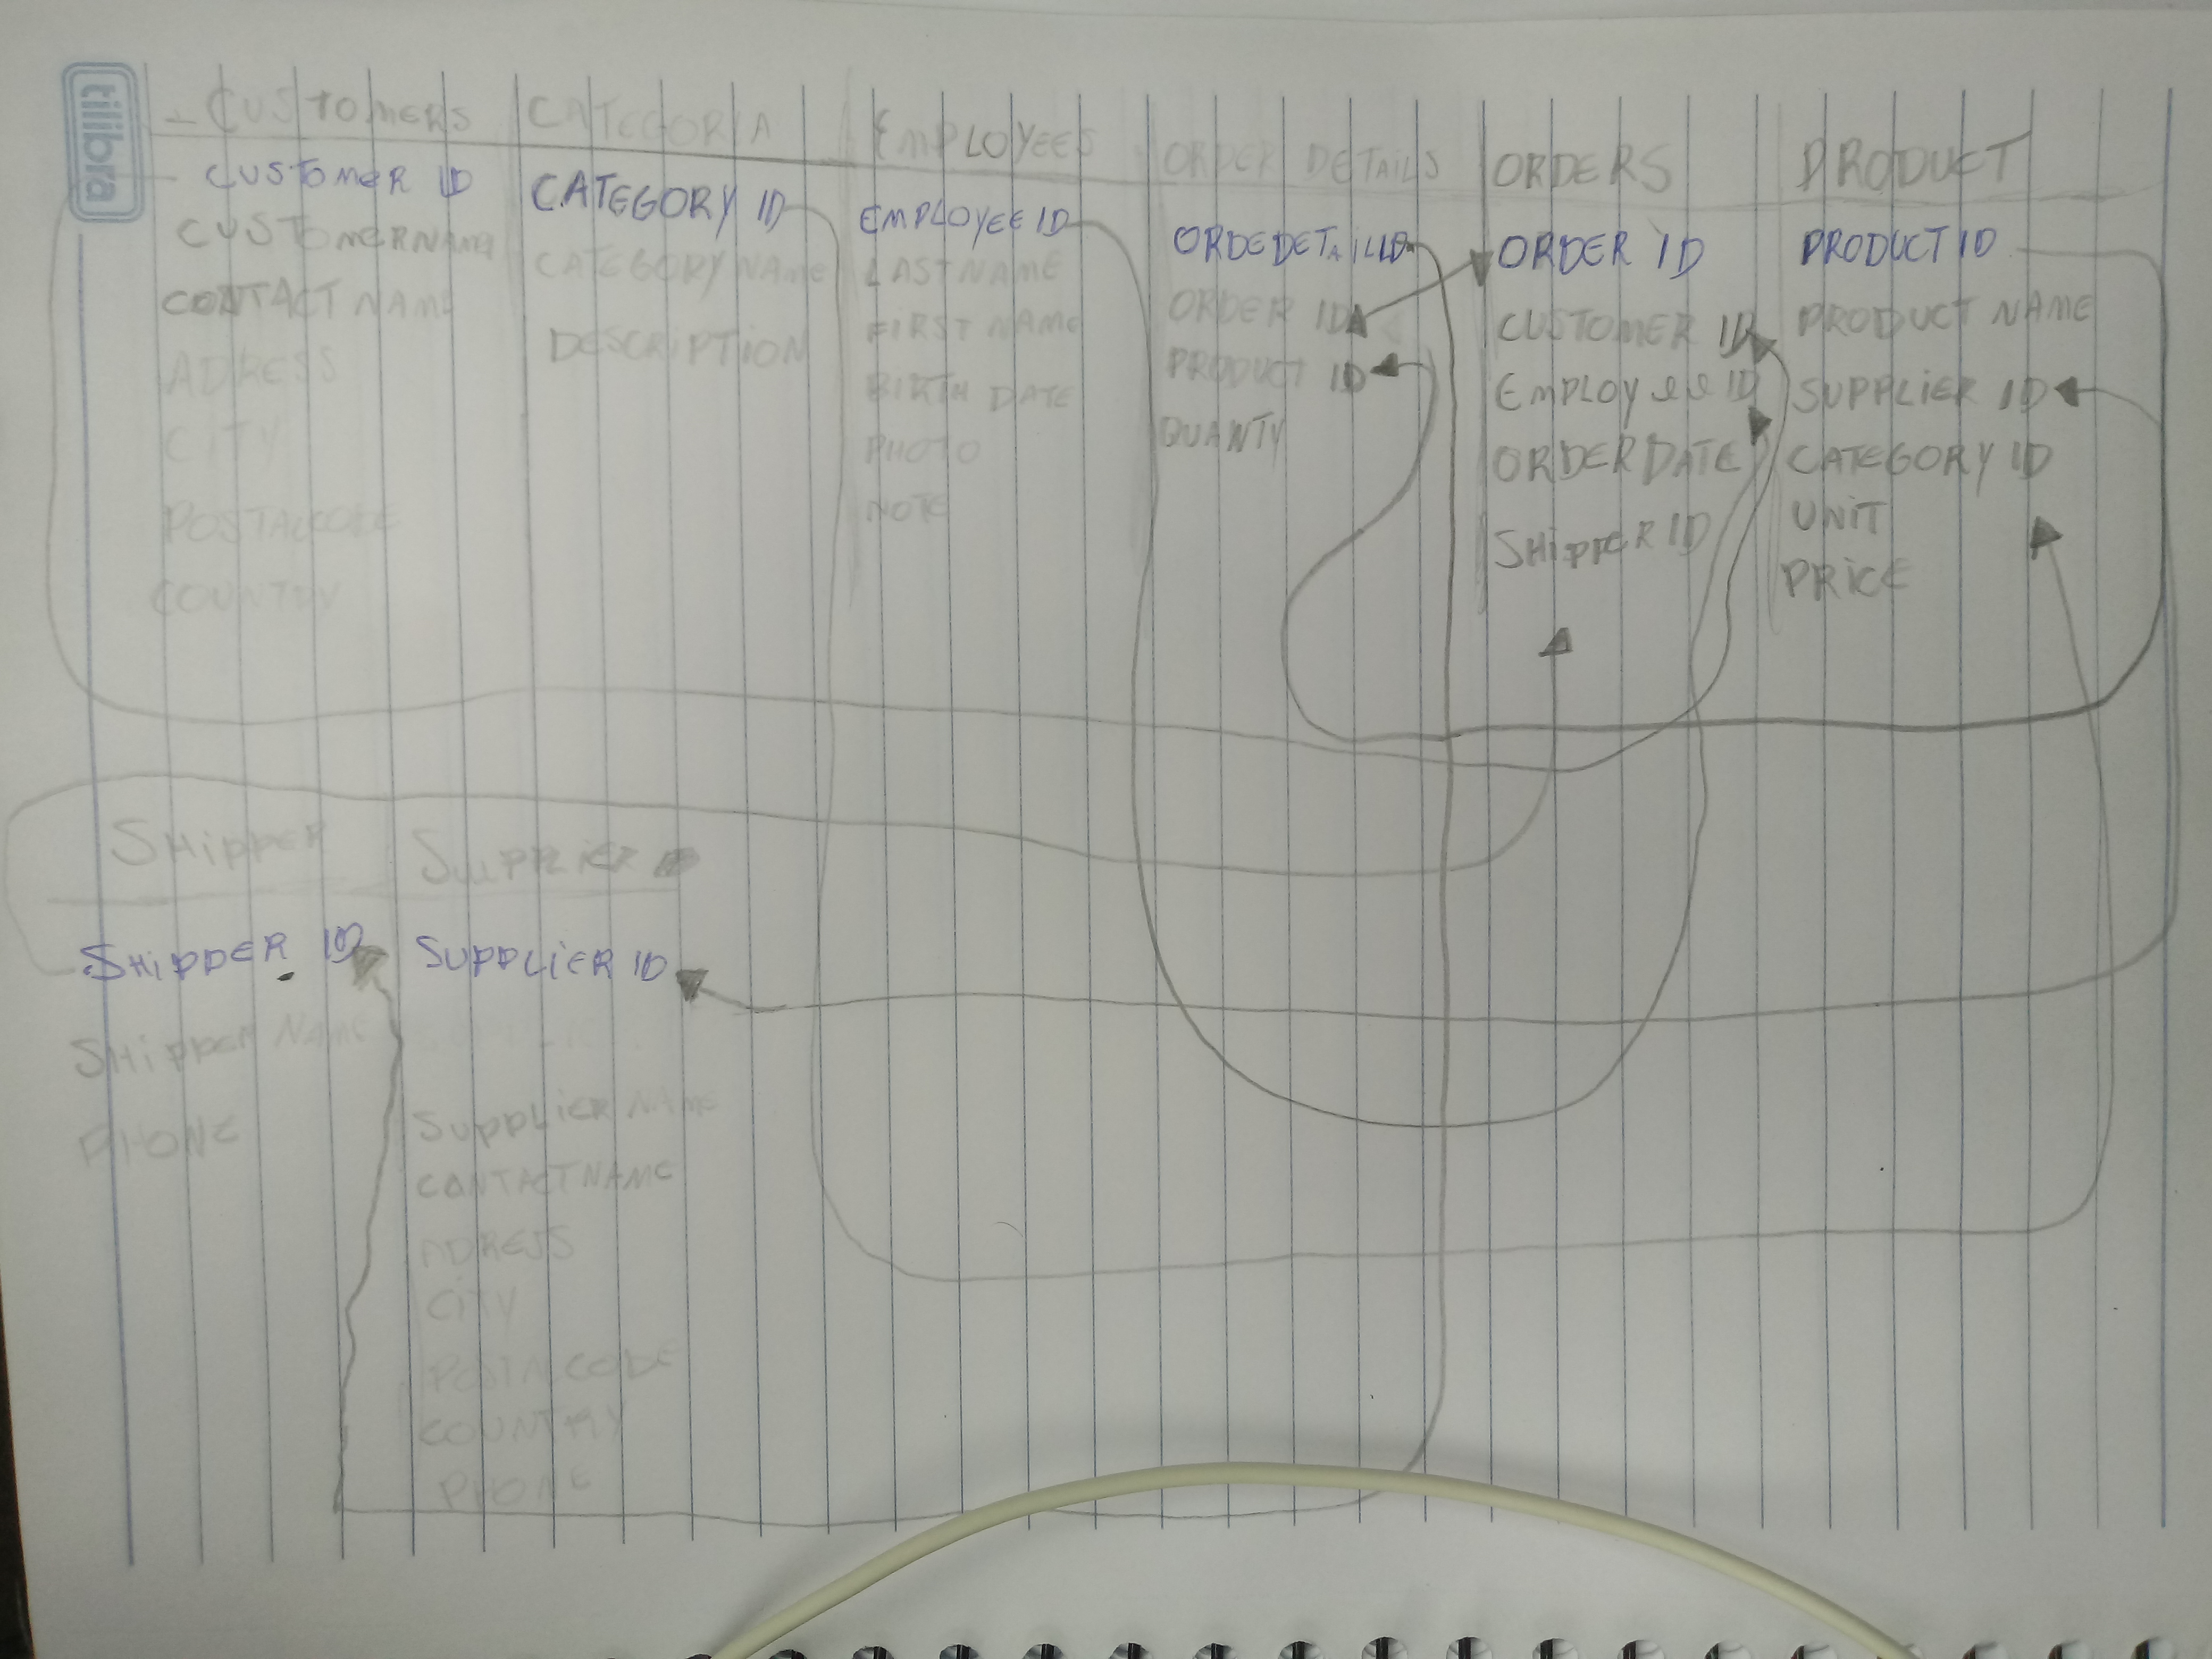 tilibra
CUSTOMERS
CUSTOMER ID
CUSTOMERNAME
CONTACT NAME
ADRESS
CITY
POSTALCODE
COUNTRY
CATEGORIA
CATEGORY ID
CATEGORY NAME
DESCRIPTION
EMPLOYEES
EMPLOYEE ID
LASTNAME
FIRST NAME
BIRTH DATE
PHOTO
NOTE
ORDER DETAILS
ORDEDETAILID
ORDER ID
PRODUCT ID
QUANTY
ORDERS
ORDER ID
CUSTOMER ID
EMPLOYEE ID
ORDERDATE
SHIPPER ID
PRODUCT
PRODUCT ID
PRODUCT NAME
SUPPLIER ID
CATEGORY ID
UNIT
PRICE
SHIPPER
SHIPPER ID
SHIPPER NAME
PHONE
SUPPLIER
SUPPLIER ID
SUPPLIER NAME
CONTACTNAME
ADRESS
CITY
POSTALCODE
COUNTRY
PHONE